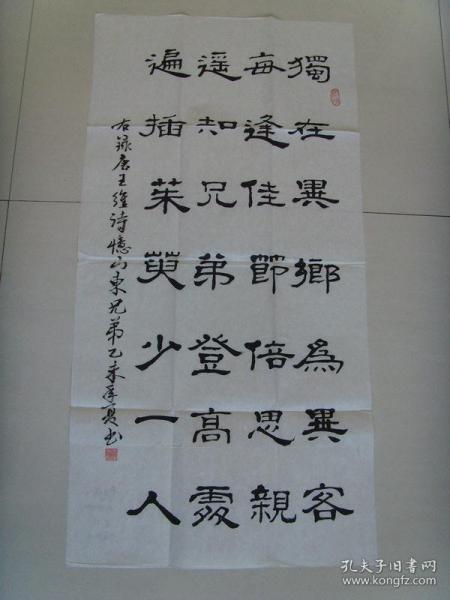 獨在異鄉為異客
每逢佳節倍思親
遥知兄弟登高處
遍插茱萸少一人
右錄唐王維詩憶山東兄弟乙未書
孔夫子旧书网
www.kongfz.com